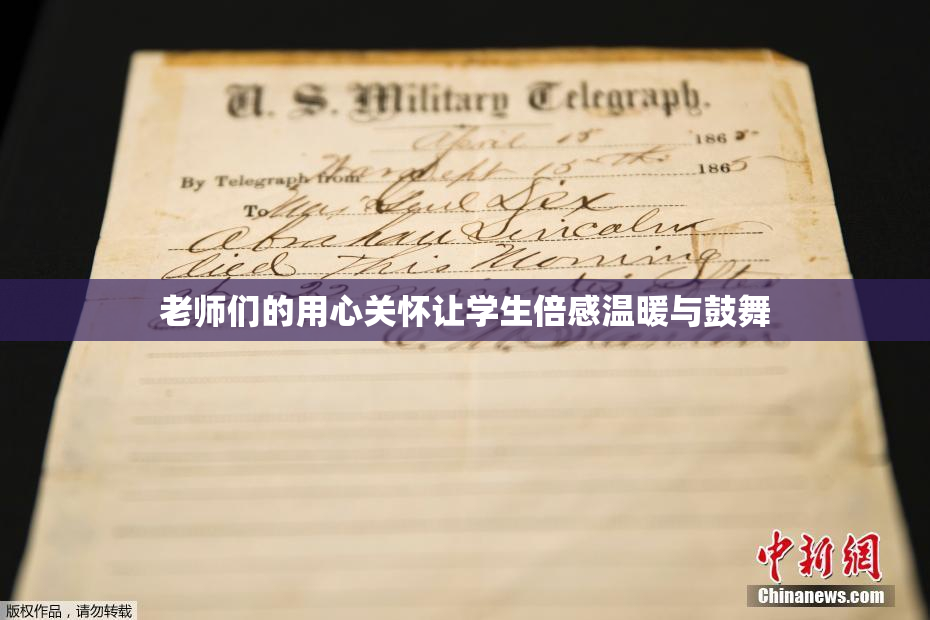 U. S. Military Telegraph.
April 15 1865-
By Telegraph from War Dept 15th 1865
To Maj Genl Dix
Abraham Lincoln
died This Morning
at 22 minutes after
老师们的用心关怀让学生倍感温暖与鼓舞
E. M. Stanton
中新網
Chinanews.com
版权作品，请勿转载